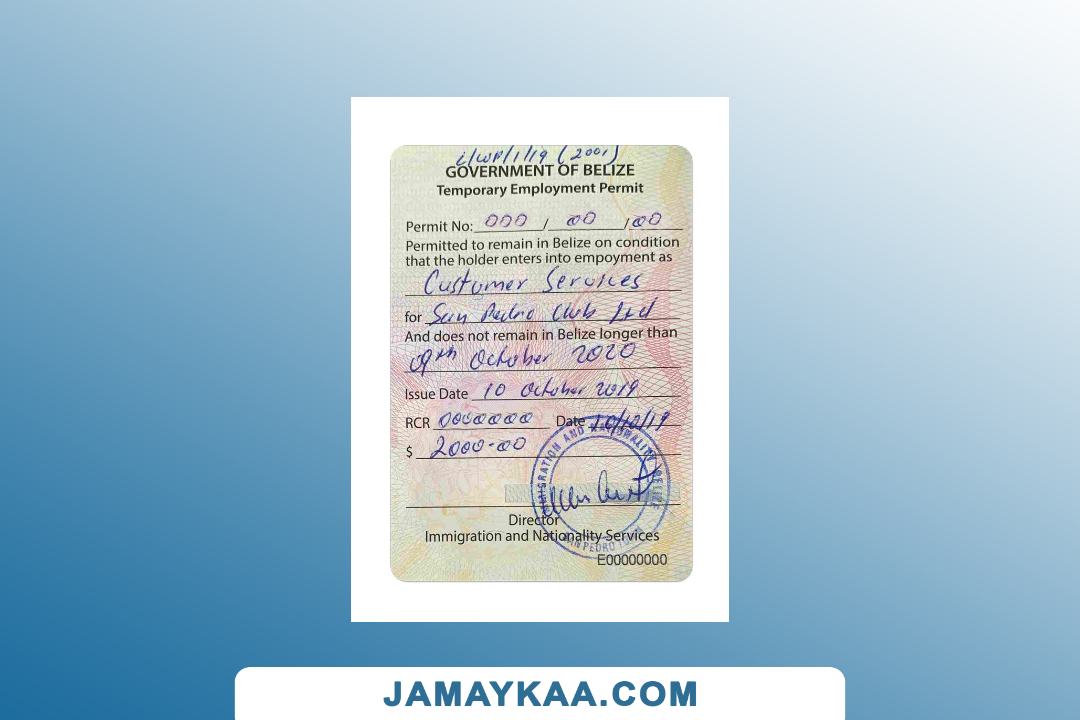 i/WP/1/19 (2001)
GOVERNMENT OF BELIZE
Temporary Employment Permit
Permit No: 000 / 00 / 00
Permitted to remain in Belize on condition
that the holder enters into empoyment as
Customer Services
for San Pedro Club Ltd
And does not remain in Belize longer than
09th October 2020
Issue Date 10 October 2019
RCR 0000000 Date 10/10/19
$ 2000-00
IMMIGRATION AND NATIONALITY BELIZE
SAN PEDRO TOWN
Director
Immigration and Nationality Services
E00000000
JAMAYKAA.COM